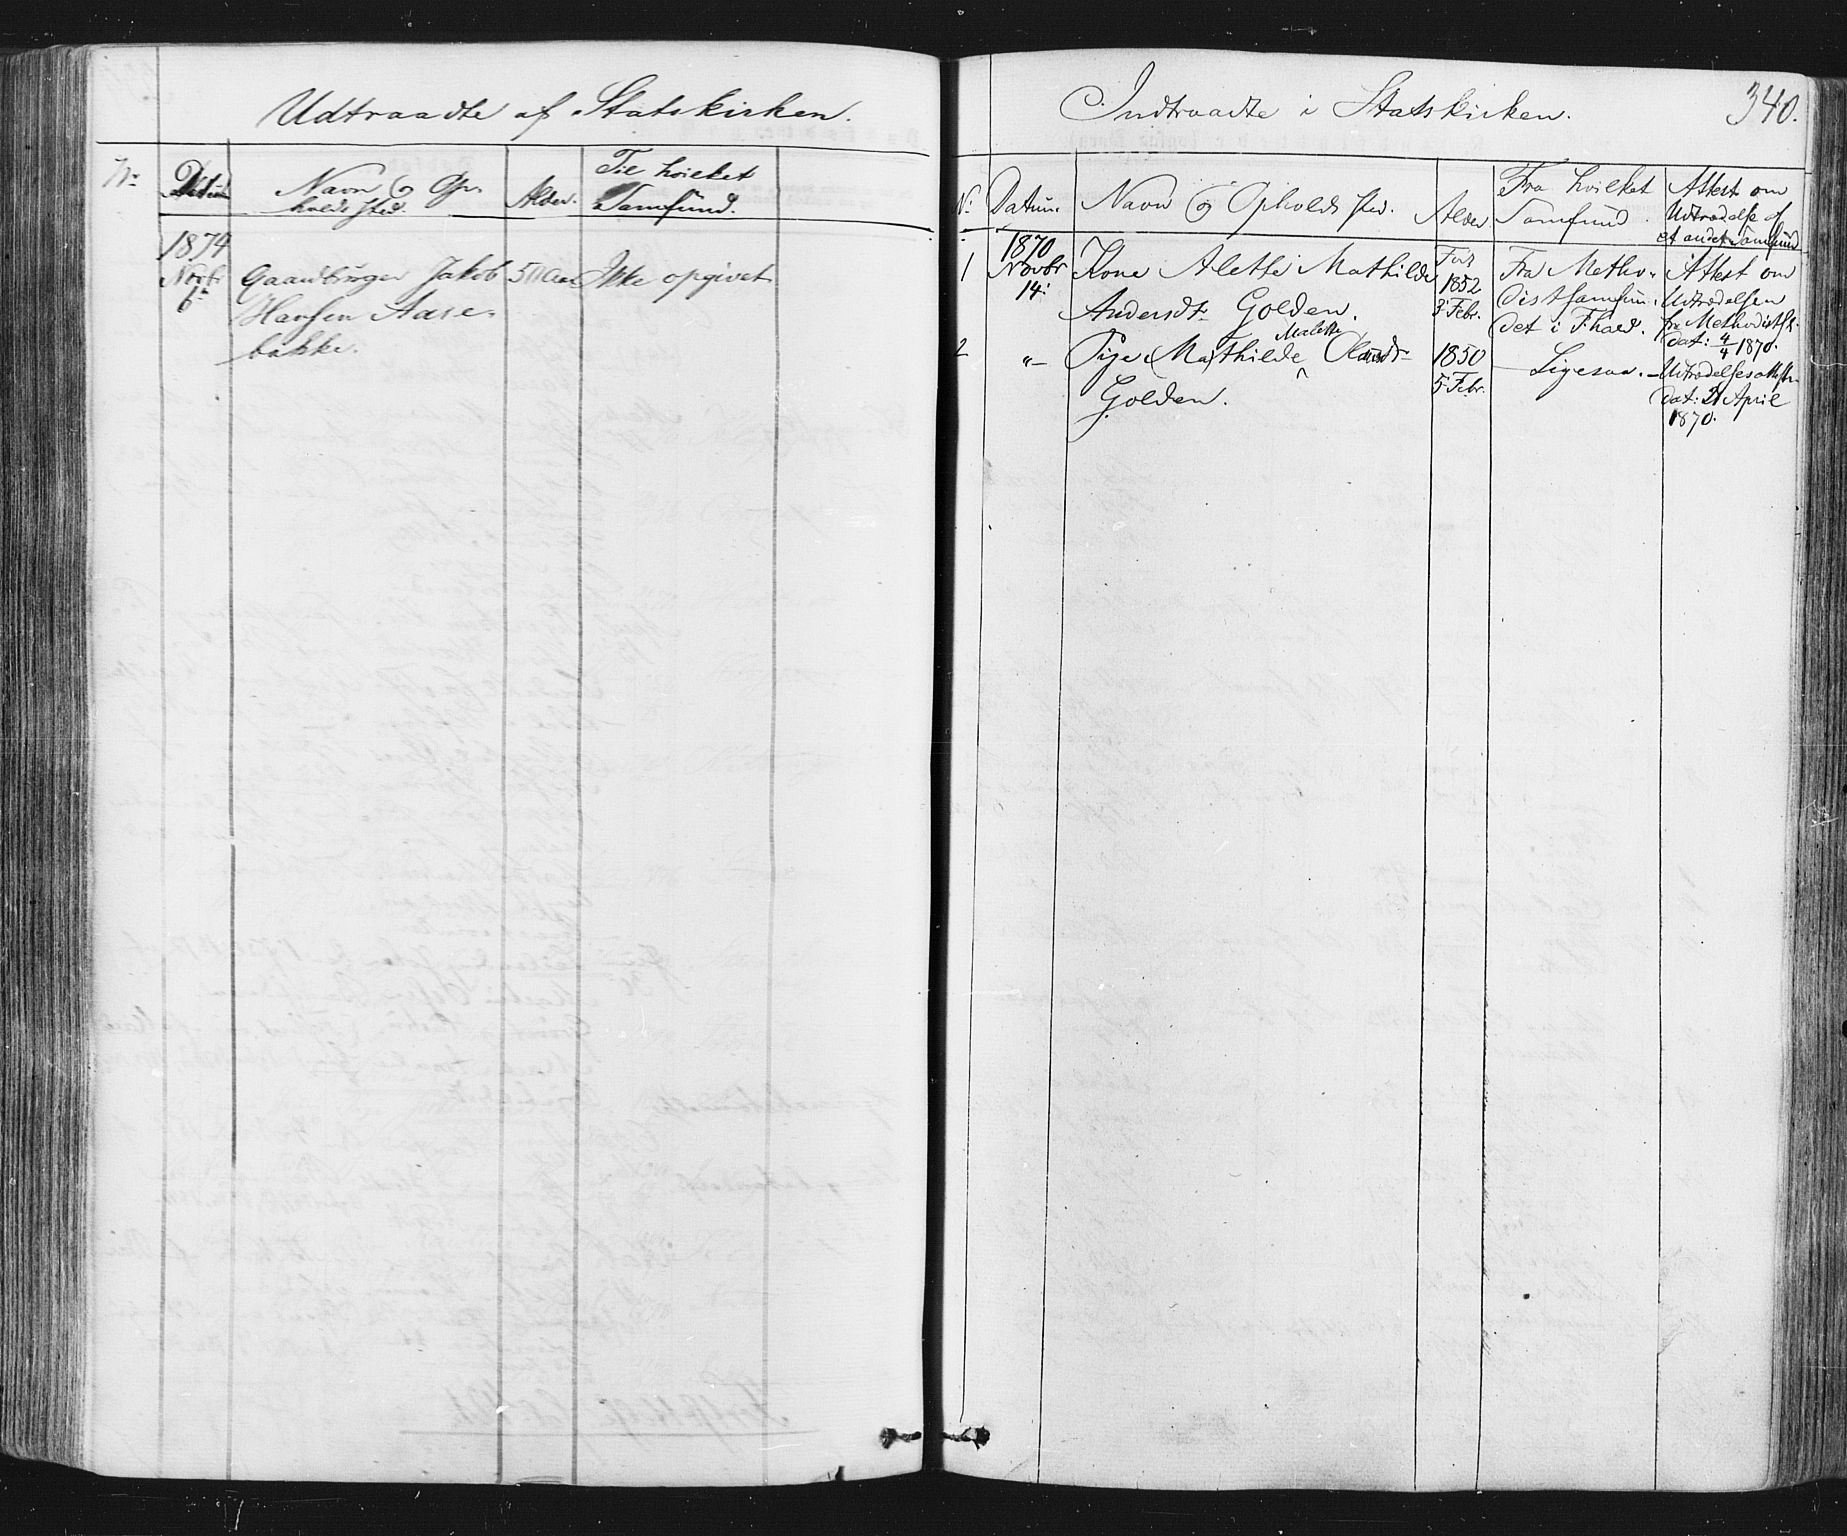 Udtraadte af Statskirken.
No Datum Navn og Op- Alder. Til hvilket
holdssted. Samfund.
1874
Novbr Gaardbruger Jakob 50 Aar Ikke opgivet
6te Hansen Aase-
bakke.
Indtraadte i Statskirken. 340.
No Datum. Navn og Opholdssted. Alder Fra hvilket Samfund. Attest om
Udtrædelse af
et andet Samfund
1 1870 Kone Alette Mathilde Født Fra Metho- Attest om
Novbr 14: Andersdt Golden. 1852 distsamfun- Udtrædelsen
3 Febr. det i Fhald. fra Methodistsk.
dat: 4/4 1870.
2 "— Pige Mathilde Malette Olausdt 1850 — Ligesaa. — Udtrædelsesattest
Golden. 5 Febr. dat: 21 April
1870.